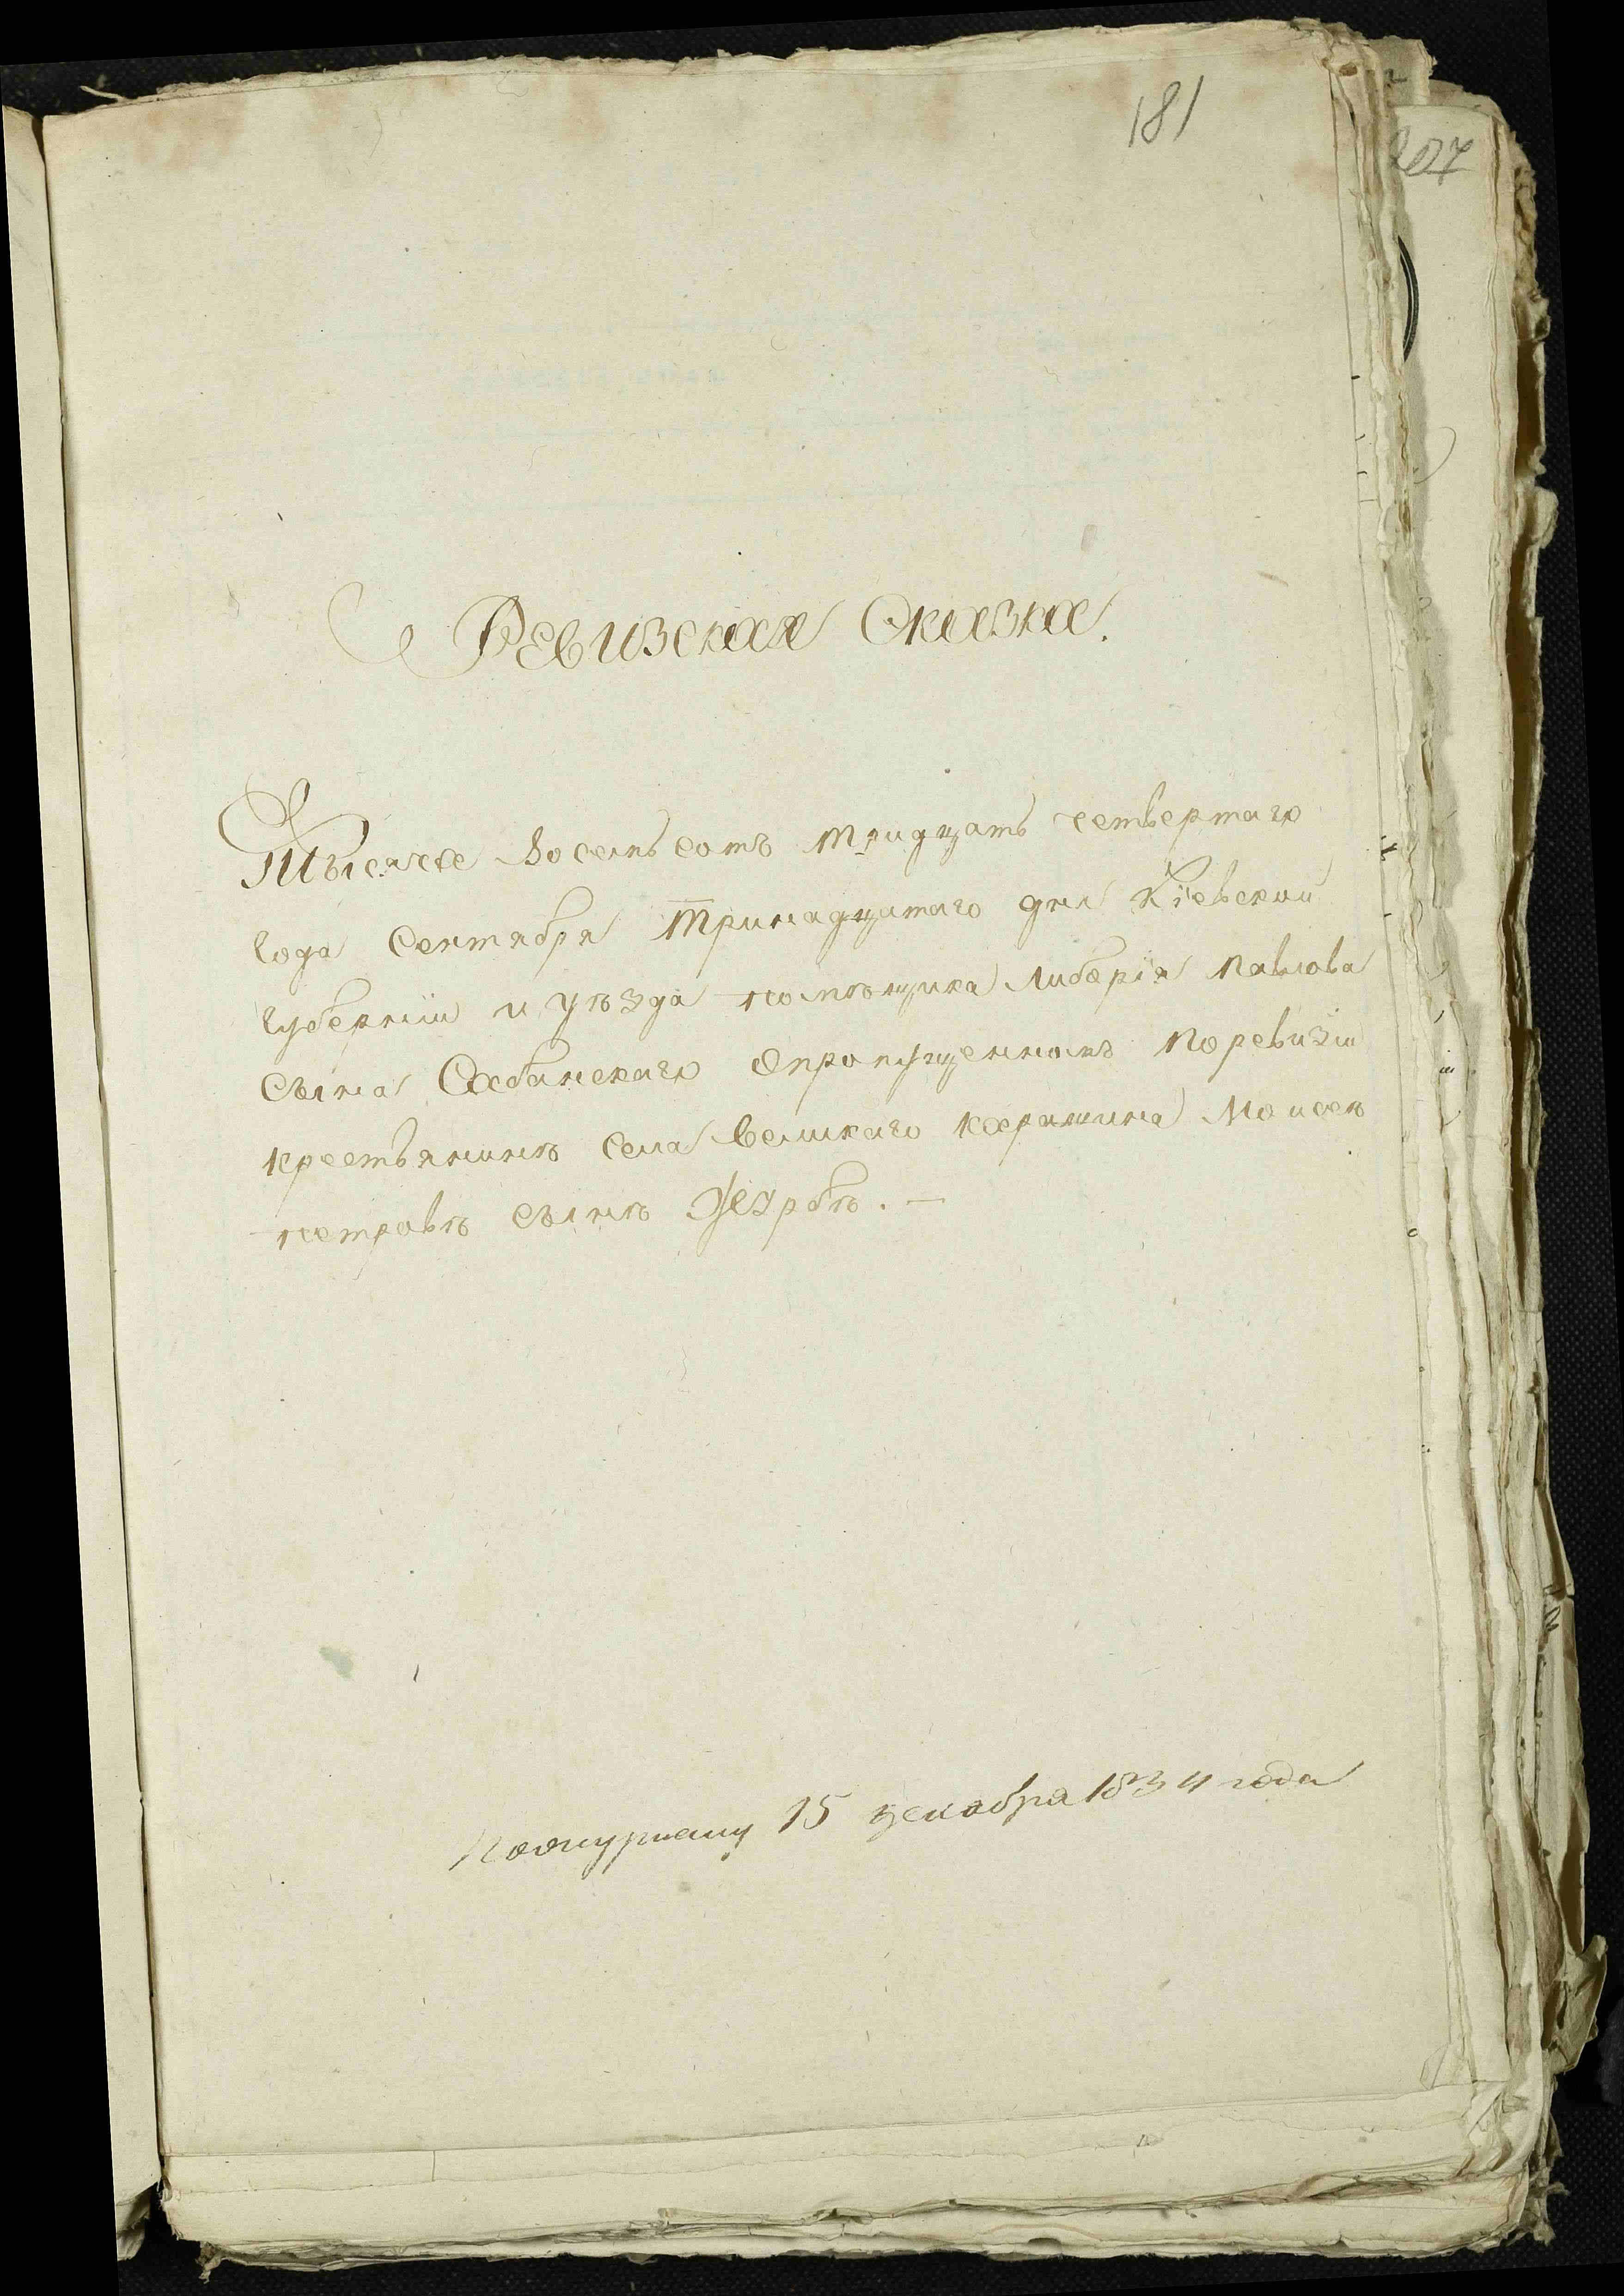 181
207
Ревизская Сказка.
Тысяча восемь сотъ тридцать четвертаго
года Сентября Тринадцатаго дня Кіевскій
губерніи и уѣзда помѣщика Либерія Павлова
Сына Собанскаго опропущенномъ поревизіи
крестьянинѣ села Великаго Корашина Моисеѣ
петровѣ сынѣ
15 декабря 1834 года